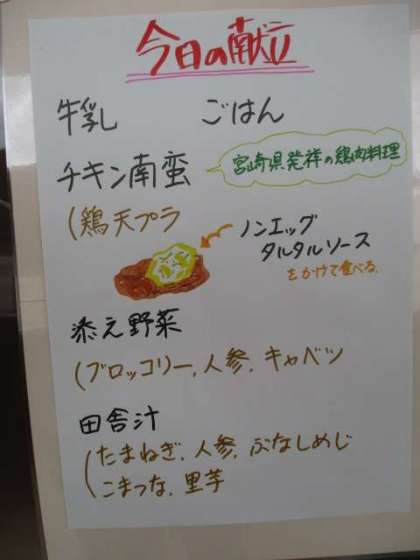 今日の献立
牛乳 ごはん
チキン南蛮
宮崎県発祥の鶏肉料理
(鶏天プラ
ノンエッグ
タルタルソース
をかけて食べる
添え野菜
(ブロッコリー,人参,キャベツ
田舎汁
(たまねぎ,人参,ぶなしめじ
こまつな,里芋